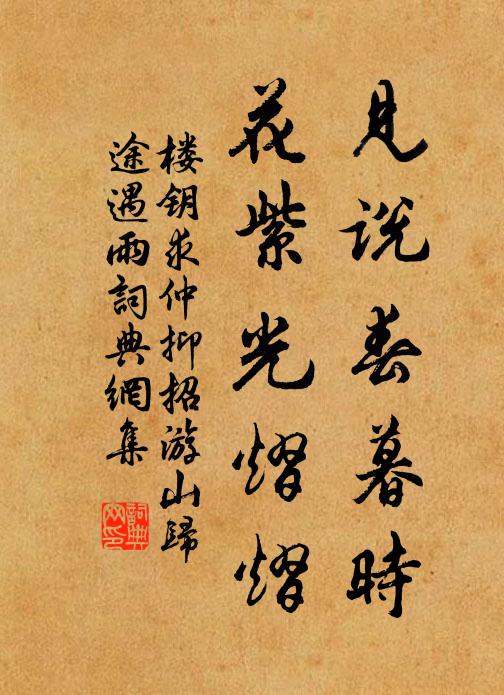 見説春暮時
花紫光熠熠
楼钥求仲抑招游山歸
途遇雨詞典網集
詞典
网印